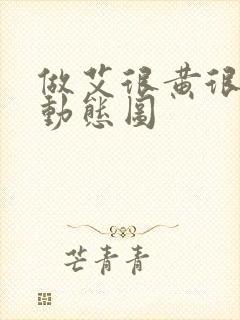 做艾很黄很
動態圖
芒青青